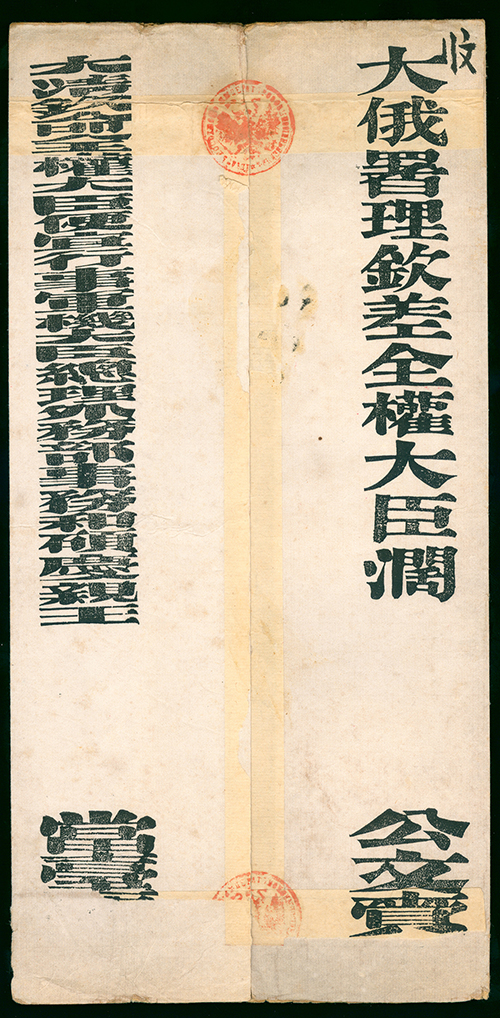 收
大俄署理欽差全權大臣濶
公文賫
大清欽命全權大臣便宜行事軍機大臣總理外務部事務和碩慶親王